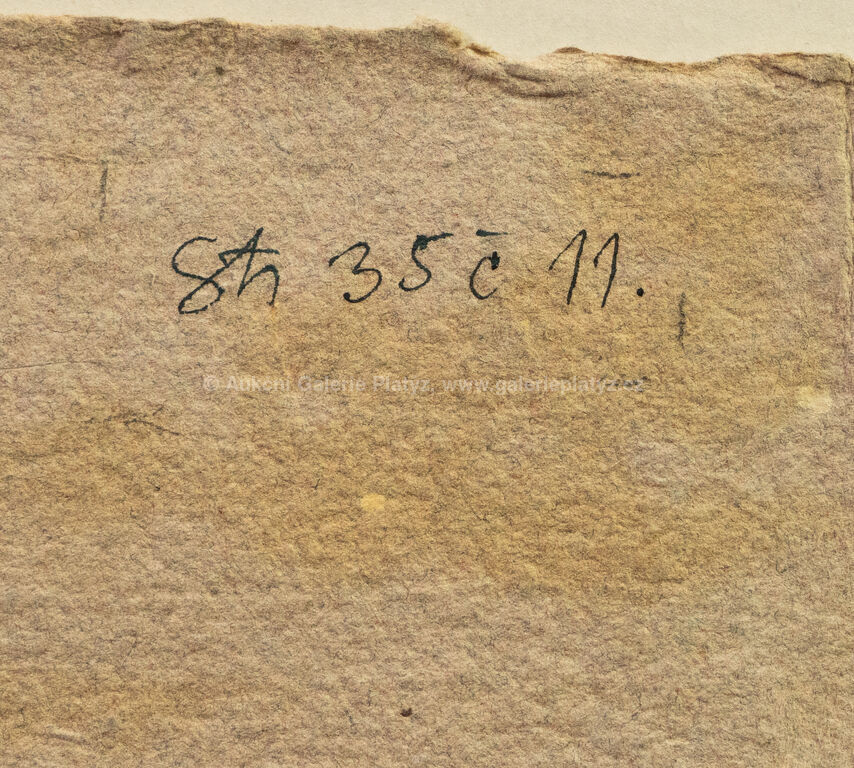 Str 35 č 11.
© Aukční Galerie Platýz, www.galerieplatyz.cz